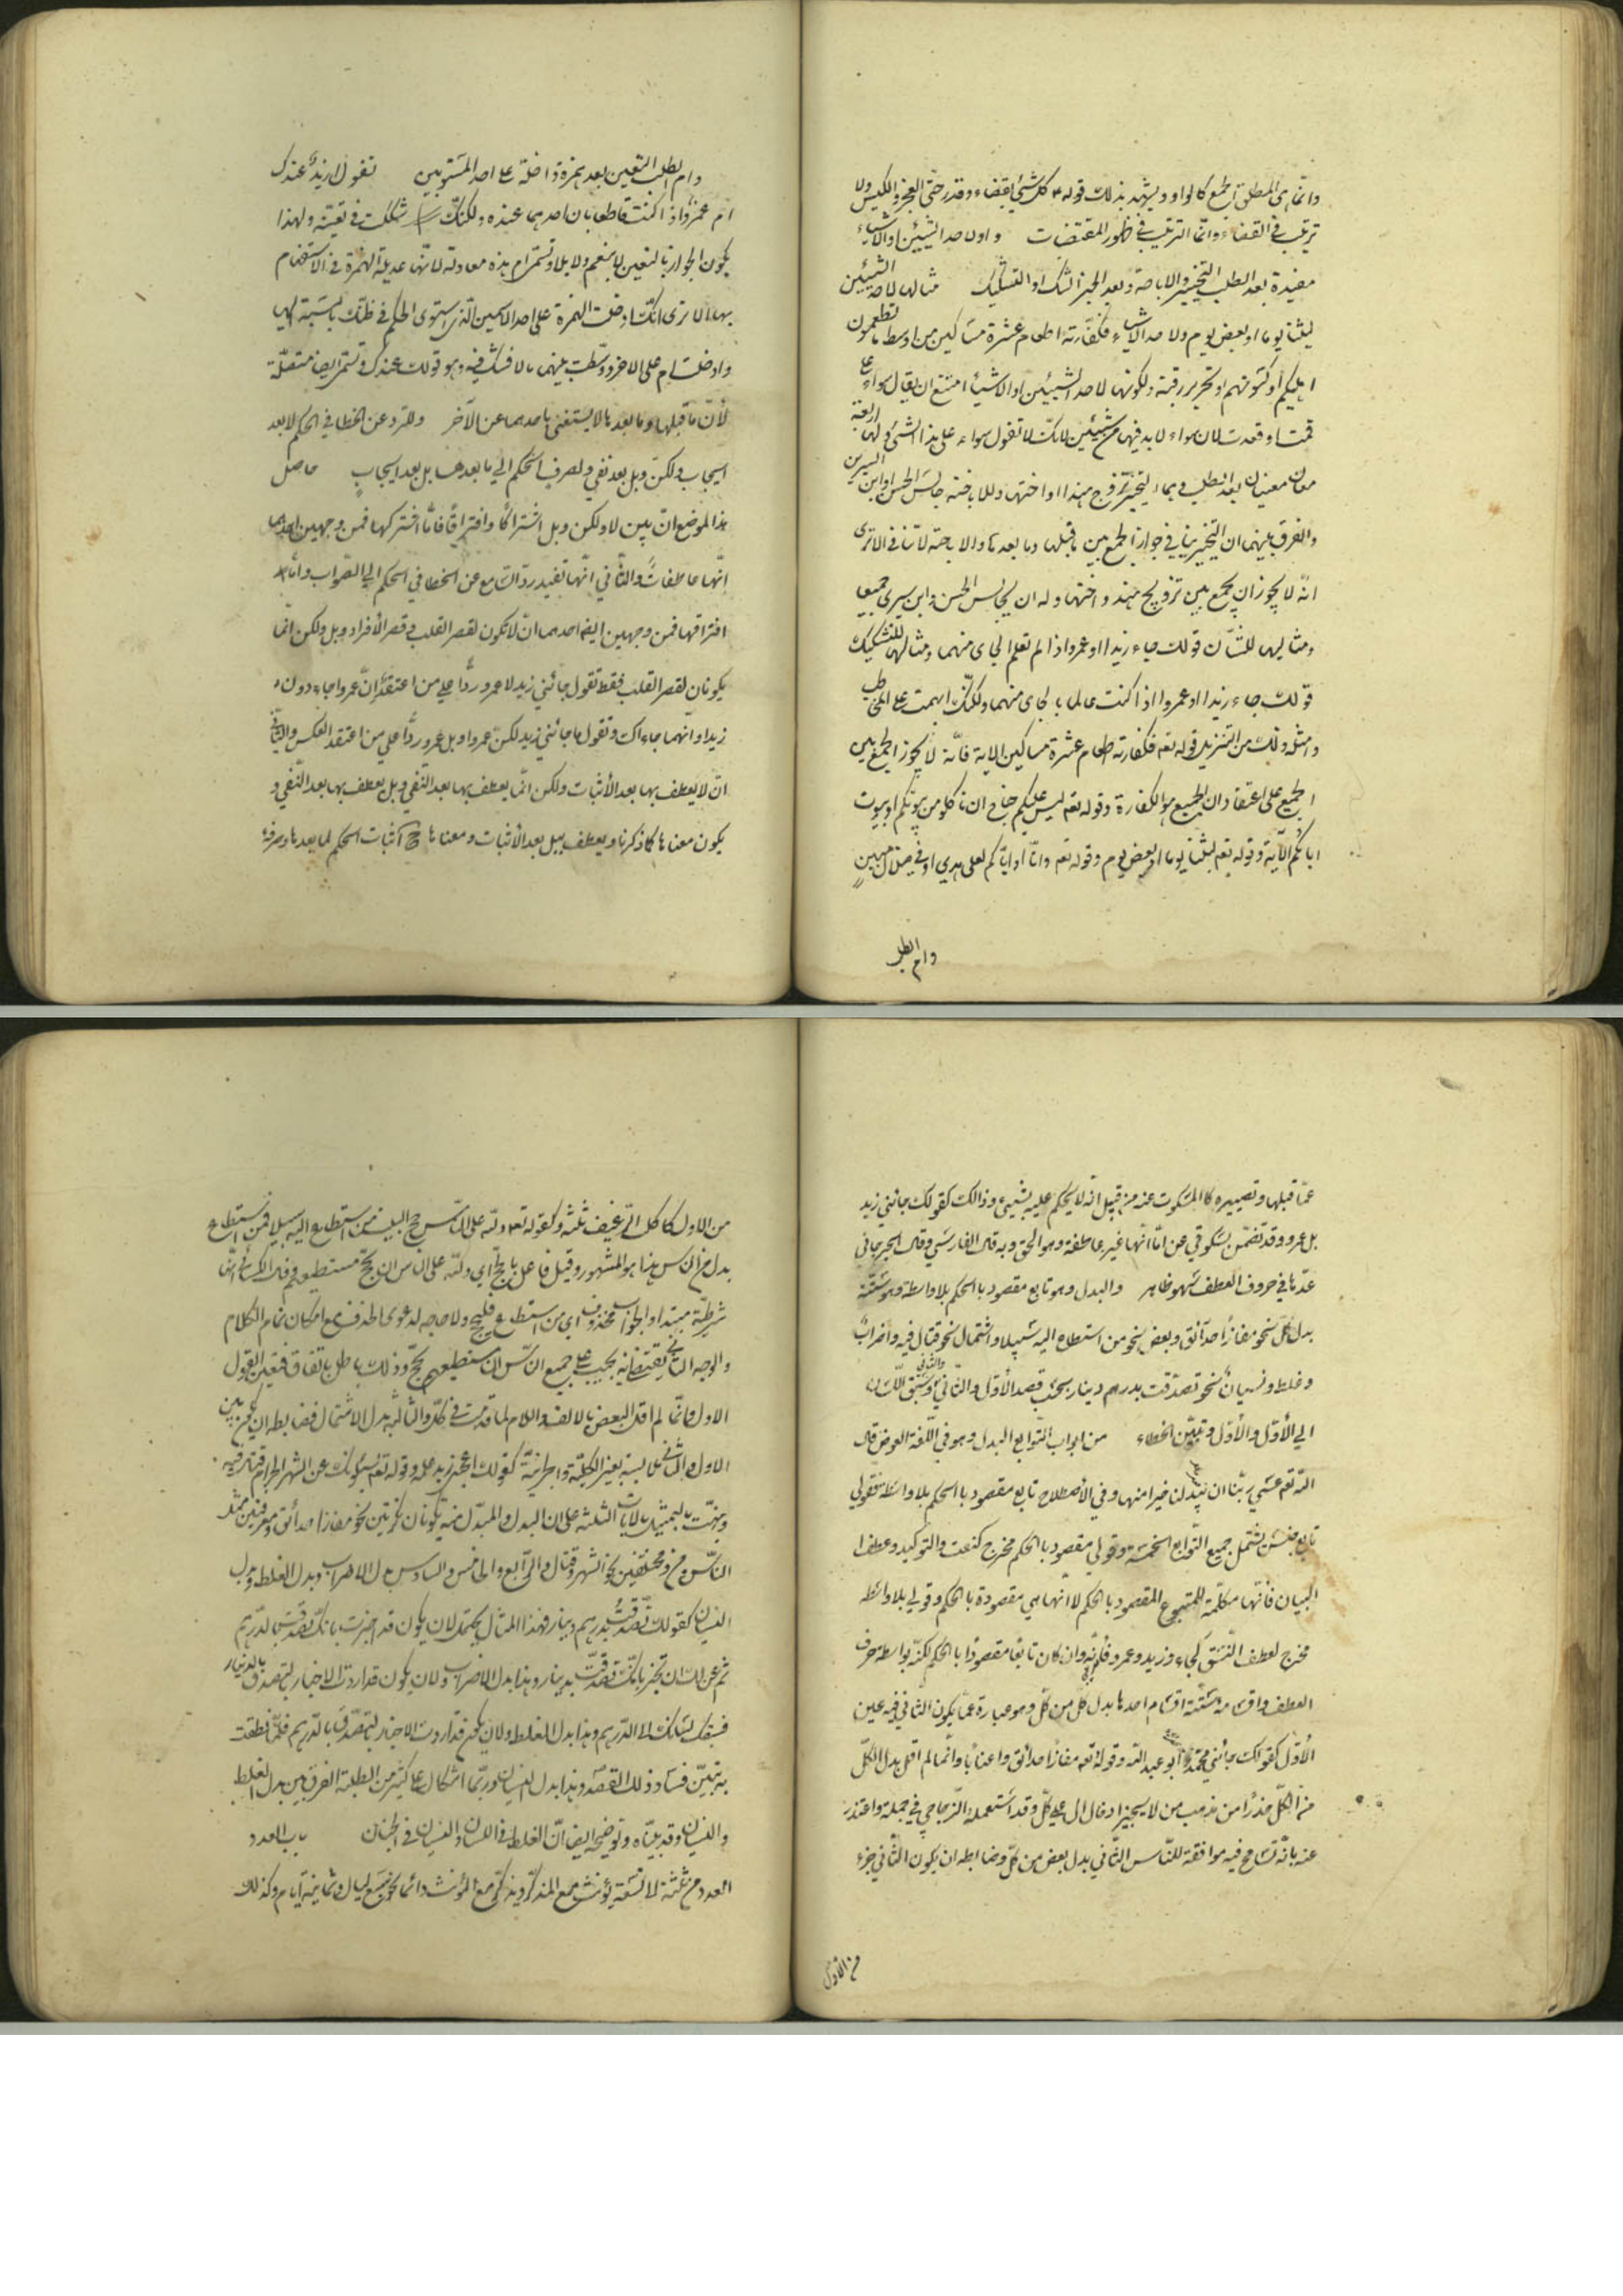 وانّما هي لمطلق الجمع كالواو ويشهد بذلك قوله ع م كل شيء بقضاء وقدر حتّى العجز والكيس ولا
ترتيب في القضاء وانّما الترتيب في ظهور المقتضيات واو لاحد الشيئين او الاشياء
مفيدة بعد الطلب التخيير والاباحة وبعد الخبر الشك او التشكيك مثالها لاحد الشيئين
لبثنا يوما او بعض يوم ولاحد الاشياء فكفّارته اطعام عشرة مساكين من اوسط ما تطعمون
اهليكم او كسوتهم او تحرير رقبة ولكونها لاحد الشيئين او الاشياء امتنع ان يقال سواء علي
قمت او قعدت لان سواء لا بد فيها من شيئين لانك لا تقول سواء على هذا الشيء ولها اربعة
معان معنيان بعد الطلب وهما التخيير تزوج هندا او اختها وللاباحة جالس الحسن او ابن السيرين
والفرق بينهما ان التخيير ينافي جواز الجمع بين ما قبلها وما بعدها والاباحة لا تنافي الا ترى
انه لا يجوز ان يجمع بين تزويج هند واختها وله ان يجالس الحسن وابن سيرين جميعا
ومثالها للشك قولك جاء زيد او عمرو اذا لم تعلم الجاي منهما ومثالها للتشكيك
قولك جاء زيد او عمرو اذا كنت عالما بالجاي منهما ولكنّك ابهمت على المخاطب
وامثلة ذلك من التنزيل قوله تعم فكفارته اطعام عشرة مساكين الاية فانّه لا يجوز الجمع بين
الجميع على اعتقاد ان الجميع هو الكفارة وقوله تعم ليس عليكم جناح ان تأكلوا من بيوتكم او بيوت
ابائكم الآية وقوله تعم لبثنا يوما او بعض يوم وقوله تعم وانّا او ايّاكم لعلى هدى او في ضلال مبين
وام لطلب
وام لطلب التعيين بعد همزة داخلة على احد المستويين تقول ازيد عندك
ام عمرو اذا كنت قاطعا بان احدهما عنده ولكنّك شككت في تعيينه ولهذا
يكون الجواب بالتعيين لا بنعم ولا بلا وتسمّى ام هذه معادلة لانّها عديلة الهمزة في الاستفهام
بها الا ترى انّك ادخلت الهمزة على احد الاسمين الذين استوى الحكم في ظنّك بالنسبة اليهما
وادخلت ام على الاخر ووسّطت بينهما ما لا تشك فيه وهو قولك عندك وتسمّى ايضا متّصلة
لأنّ ما قبلها وما بعدها لا يستغني باحدهما عن الآخر وللرد عن الخطا في الحكم لا بعد
ايجاب ولكن وبل بعد نفي ولصرف الحكم الي ما بعدها بل بعد ايجاب حاصل
هذا الموضع انّ بين لا ولكن وبل اشتراكا وافتراقا فامّا اشتراكها فمن وجهين احدهما
انّها عاطفات والثاني انّها تفيد ردّ السّامع عن الخطا في الحكم الي الصّواب وامّا
افتراقها فمن وجهين ايضا احدهما انّ لا تكون لقصر القلب وقصر الأفراد وبل ولكن انّما
يكونان لقصر القلب فقط تقول جائني زيد لا عمرو ردّا على من اعتقد انّ عمروا جاء دون
زيد او انّهما جاءاك وتقول ما جائني زيد لكن عمرو او بل عمرو ردّا علي من اعتقد العكس والثاني
انّ لا يعطف بها بعد الأثبات ولكن انّما يعطف بها بعد النّفي وبل يعطف بها بعد النّفي و
يكون معناها كما ذكرنا ويعطف ببل بعد الأثبات ومعناها ح اثبات الحكم لما بعدها وصرفه
عمّا قبلها وتصييره كالمسكوت عنه من قبيل انّه لا يحكم عليه بشيئ وذالك كقولك جائني زيد
بل عمرو وقد تضمّن سكوتي عن امّا انّها غير عاطفة وهو الحق وبه قال الفارسي وقال الجرجاني
عدّها في حروف العطف سهو ظاهر والبدل وهو تابع مقصود بالحكم بلا واسطة وهو ستّة
بدل كلّ نحو مفازا حدآئق وبعض نحو من استطاع اليه سبيلا واشتمال نحو قتال فيه واضراب
وغلط ونسيان نحو تصدّقت بدرهم دينار بحسب قصد الأوّل والثّاني او الثاني وسبق اللّسان
الي الأوّل والأوّل وتبيّن الخطاء من ابواب التّوابع البدل وهو في اللّغة العوض قال
اللّه تعم عسى ربّنا ان يبدلنا خيرا منها وفي الأصطلاح تابع مقصود بالحكم بلا واسطة فقولي
تابع جنس يشتمل جميع التّوابع الخمسة وقولي مقصود بالحكم مخرج للنعت والتّوكيد وعطف
البيان فأنّها مكمّلة للمتبوع المقصود بالحكم لا انّها هي مقصودة بالحكم وقولي بلا واسطة
مخرج لعطف النّسق كجاء زيد وعمرو فانّه وان كان تابعا مقصودا بالحكم لكنّه بواسطة حرف
العطف واقسامه ستّة اقسام احدها بدل كلّ من كلّ وهو عبارة عمّا يكون الثّاني فيه عين
الأوّل كقولك جائني محمّد ابو عبد اللّه وقوله تعم مفازا حدائق واعنابا وانّما لم اقل بدل الكلّ
من الكلّ حذرا من مذهب من لا يجيز ادخال ال على كلّ وقد استعمله الزّجاجي في جملة واعتذر
عنه بانّه تسامح فيه موافقة للنّاس الثّاني بدل بعض من كلّ وضابطه ان يكون الثّاني جزء
من الأوّل
من الاوّل كاكلت الرّغيف ثلثه وكقوله تعم ولله على النّاس حج البيت من استطاع اليه سبيلا فمن استطاع
بدل من النّاس هذا هو المشهور وقيل فاعل بالحج اي ولله على الناس ان يحج مستطيعهم وقال الكسائي انّها
شرطيّة مبتداء والجواب محذوف اي من استطاع فليحج ولا حاجة لدعوى الحذف مع امكان تمام الكلام
والوجه الثّاني يقتضي انه يجب على جميع النّاس ان مستطيعهم يحجّ وذلك باطل باتّفاق فتعيّن القول
الاول وانّما لم اقل البعض بالالف واللام لما قدمت في كلّ والثالث بدل الاشتمال وضابطه ان يكون بين
الاول والثّاني ملابسة بغير الكليّة والجزئيّة كقولك اعجبني زيد علمه وقوله تعم يسئلونك عن الشهر الحرام قتال فيه
ونبّهت بالتمثيل بالايات الثلثة على ان البدل والمبدّل منه يكونان نكرتين نحو مفازا حدائق ومعرفتين مثل
النّاس ومن ومختلفين نحو الشهر وقتال والرّابع والخامس والسادس بدل الاضراب وبدل الغلط وبدل
النسيان كقولك تصدّقت بدرهم دينار فهذا المثال يحتمل لان يكون قد اخبرت بانّك تصدّقت بالدّرهم
ثم عنّ لك ان تخبر بانّك تصدّقت بدينار وهذا بدل الاضراب ولان يكون قد اردت الاخبار بالتصدّق بالدينار
فسبقك لسانك الى الدّرهم وهذا بدل الغلط ولان يكون قد اردت الاخبار بالتصدّق بالدّرهم فلمّا نطقت
به تبيّن فساد ذلك القصد وهذا بدل النسيان وربّما اشكل على كثير من الطلبة الفرق بين بدل الغلط
والنسيان وقد بيّناه وتوضيحه ايضا انّ الغلط في اللسان والنسيان في الجنان باب العدد
العدد من ثلثة الى تسعة يؤنّث مع المذكّر ويذكّر مع المؤنّث دائما نحو سبع ليال وثمانية ايّام وكذلك